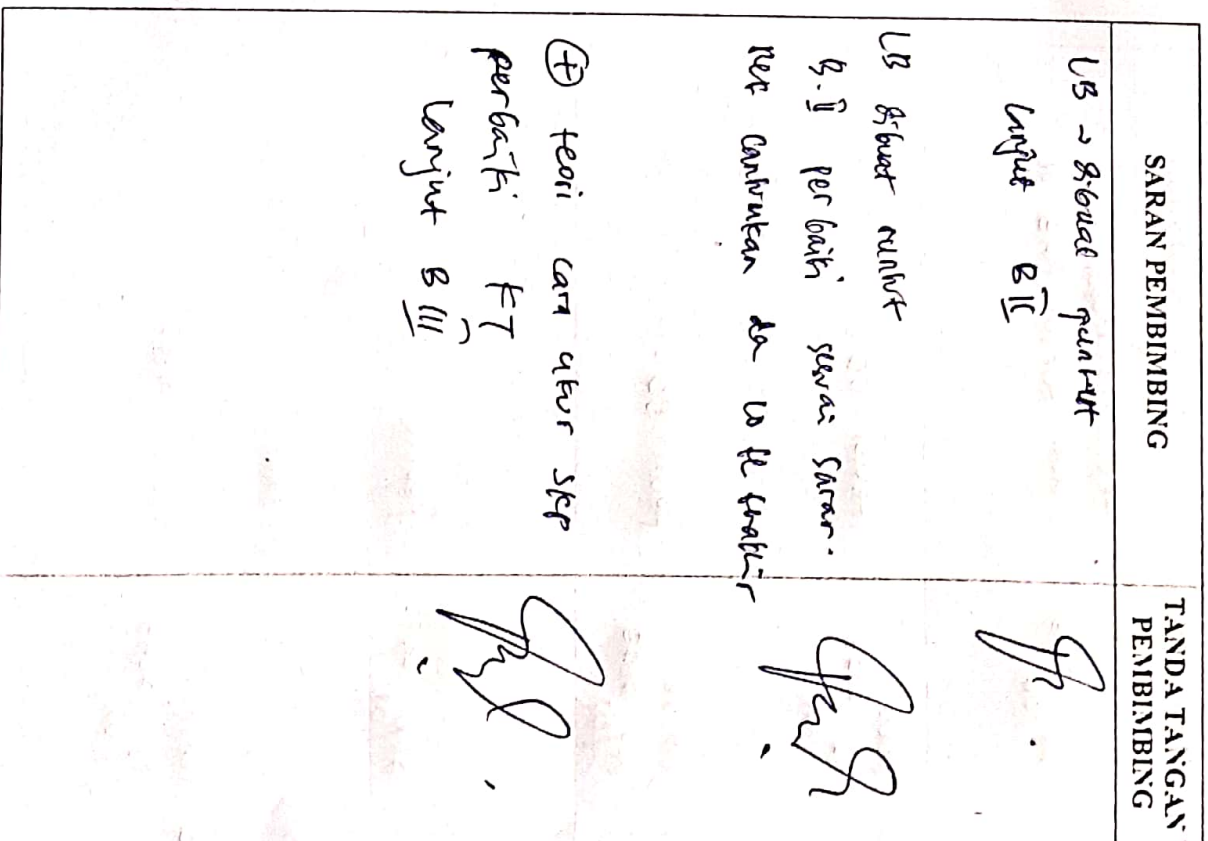 SARAN PEMBIMBING
TANDA TANGAN
PEMBIMBING
LB → dibuat runtut
lanjut B II
LB dibuat runtut
B. II perbaiki sesuai saran.
cantumkan
+ teori cara ukur skp
perbaiki KT
Lanjut B III